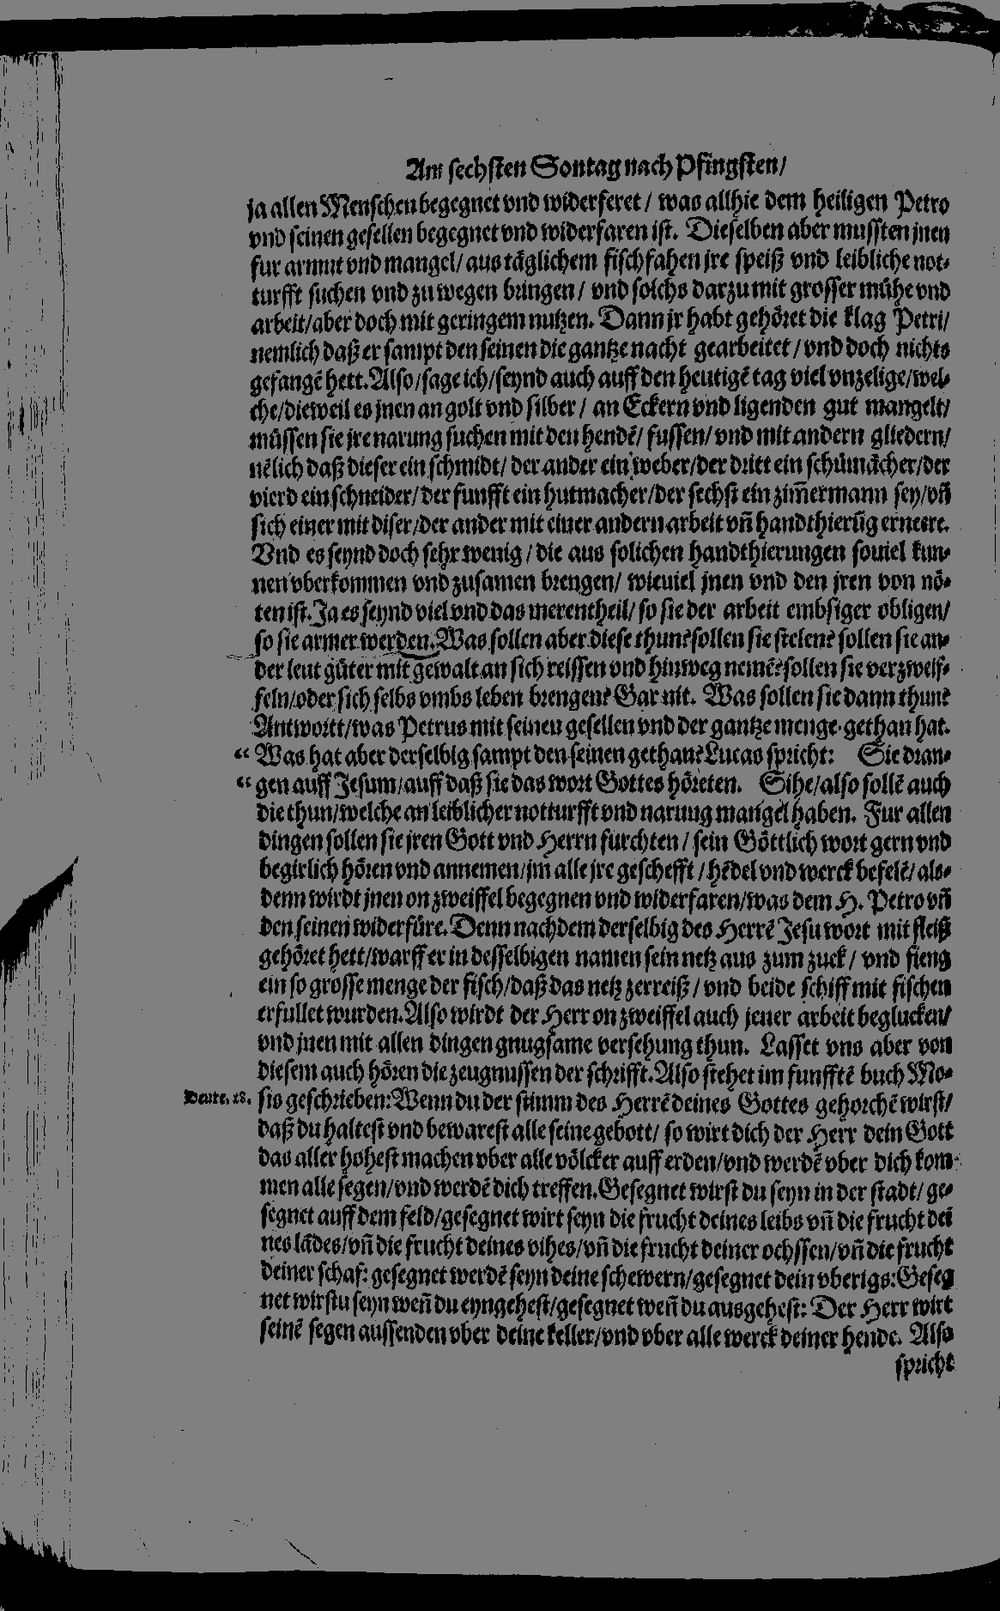 Am sechsten Sontag nach Pfingsten/
ja allen Menschen begegnet vnd widerferet / was allhie dem heiligen Petro
vnd seinen gesellen begegnet vnd widerfaren ist. Dieselben aber mussten jnen
fur armut vnd mangel/ aus täglichem fischfahen jre speiß vnd leibliche not-
turfft suchen vnd zu wegen bringen / vnd solchs darzu mit grosser mühe vnd
arbeit/aber doch mit geringem nutzen. Dann jr habt gehöret die klag Petri/
nemlich daß er sampt den seinen die gantze nacht gearbeitet / vnd doch nichts
gefangē hett. Also/sage ich/seynd auch auff den heutigē tag viel vnzelige/wel-
che/dieweil es jnen an golt vnd silber / an Eckern vnd ligenden gut mangelt/
müssen sie jre narung suchen mit den hendē/ fussen/ vnd mit andern gliedern/
nēlich daß dieser ein schmidt/ der ander ein weber/der dritt ein schümächer/der
vierd ein schneider/der funfft ein hutmacher/der sechst ein zim̄ermann sey/vn̄
sich einer mit diser/der ander mit einer andern arbeit vn̄ handthierūg ernere.
Vnd es seynd doch sehr wenig / die aus solichen handthierungen souiel kun-
nen vberkommen vnd zusamen brengen/ wieuiel jnen vnd den jren von nö-
ten ist. Ja es seynd viel vnd das merentheil/ so sie der arbeit embsiger obligen/
so sie armer werden. Was sollen aber diese thun? sollen sie stelen? sollen sie an-
der leut güter mit gewalt an sich reissen vnd hinweg nemē? sollen sie verzweif-
feln/oder sich selbs vmbs leben brengen? Gar nit. Was sollen sie dann thun?
Antwortt/was Petrus mit seinen gesellen vnd der gantze menge gethan hat.
“ Was hat aber derselbig sampt den seinen gethan? Lucas spricht: Sie dran-
“ gen auff Jesum/auff daß sie das wort Gottes höreten. Sihe/also sollē auch
die thun/welche an leiblicher notturfft vnd narung mangel haben. Fur allen
dingen sollen sie jren Gott vnd Herrn furchten / sein Göttlich wort gern vnd
begirlich hören vnd annemen/jm alle jre geschefft / hēdel vnd werck befelē/ als-
denn wirdt jnen on zweiffel begegnen vnd widerfaren/was dem H. Petro vn̄
den seinen widerfüre. Denn nachdem derselbig des Herrē Jesu wort mit fleiß
gehöret hett/warff er in desselbigen namen sein netz aus zum zuck / vnd fieng
ein so grosse menge der fisch/daß das netz zerreiß / vnd beide schiff mit fischen
erfullet wurden. Also wirdt der Herr on zweiffel auch jener arbeit beglucken/
vnd jnen mit allen dingen gnugsame versehung thun. Lasset vns aber von
diesem auch hören die zeugnussen der schrifft. Also stehet im funfftē buch Mo-
Deute. 28. sis geschrieben: Wenn du der stimm des Herrē deines Gottes gehorchē wirst/
daß du haltest vnd bewarest alle seine gebott/ so wirt dich der Herr dein Gott
das aller hohest machen vber alle völcker auff erden/vnd werdē vber dich kom-
men alle segen/vnd werdē dich treffen. Gesegnet wirst du seyn in der stadt/ ge-
segnet auff dem feld/gesegnet wirt seyn die frucht deines leibs vn̄ die frucht dei
nes lādes/vn̄ die frucht deines vihes/vn̄ die frucht deiner ochssen/vn̄ die frucht
deiner schaf: gesegnet werdē seyn deine schewern/gesegnet dein vberigs: Geseg
net wirstu seyn wen̄ du eyngehest/gesegnet wen̄ du ausgehest: Der Herr wirt
seinē segen aussenden vber deine keller/vnd vber alle werck deiner hende. Also
spricht